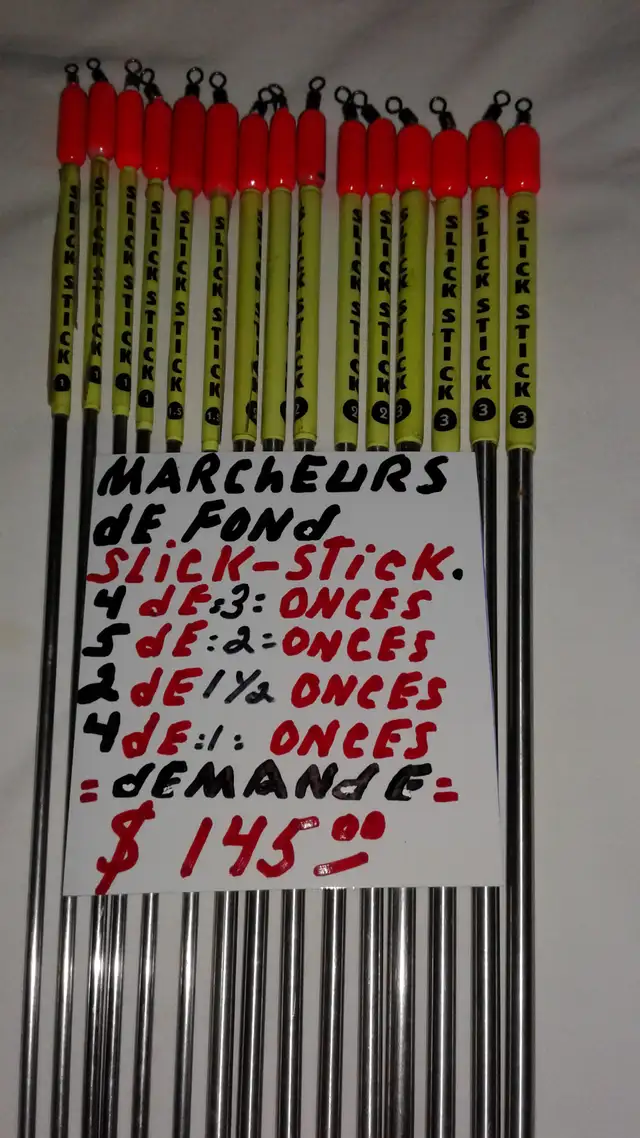 SLICK STICK 1
SLICK STICK 1
SLICK STICK 1
SLICK STICK 1
SLICK STICK 1.5
SLICK STICK 1.5
SLICK STICK 2
2
SLICK STICK 2
SLICK STICK 2
SLICK STICK 3
SLICK STICK 3
SLICK STICK 3
SLICK STICK 3
MARChEURS
dE FONd
SLiCK-STiCK.
4 dE:3= ONCES
5 dE:2=ONCES
2 dE 1 1/2 ONCES
4 dE:1: ONCES
=dEMANdE=
$ 145.00